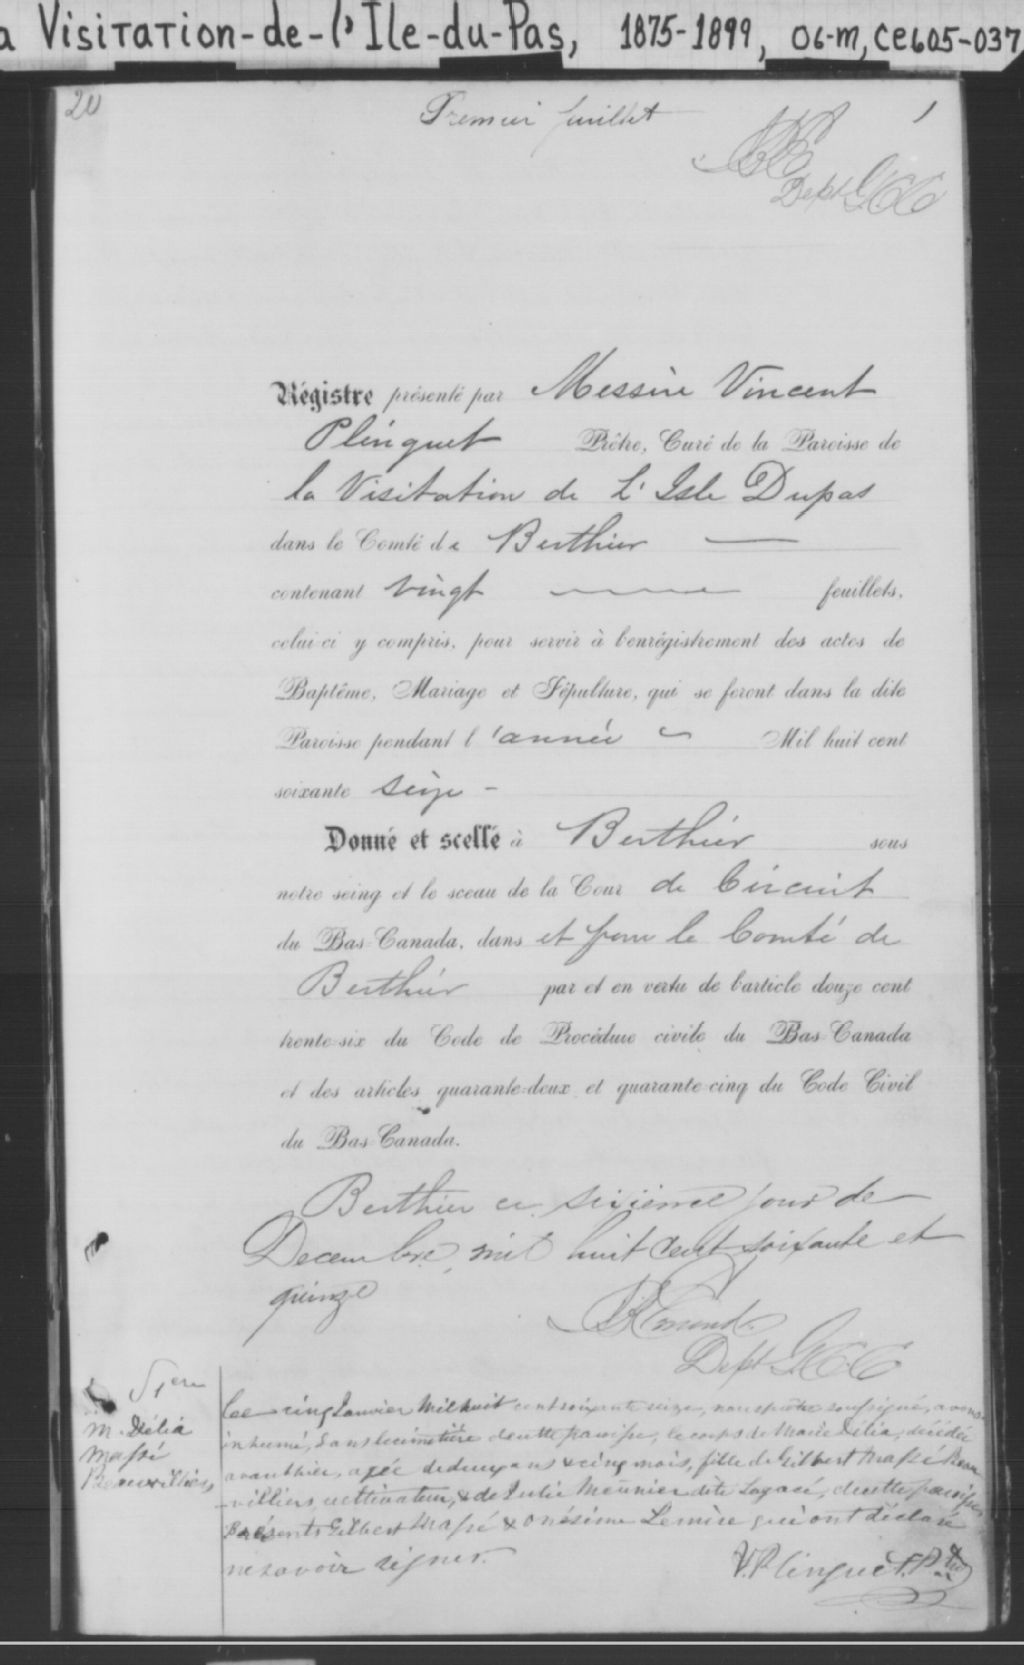 a Visitation-de-l'Ile-du-Pas, 1875-1899, 06-M, CE605-037
20 Premier feuillet 1
Dept G.C.C.
Régistre présenté par Messire Vincent
Plinguet Prêtre, Curé de la Paroisse de
la Visitation de L'Isle Dupas
dans le Comté de Berthier
contenant vingt feuillets,
celui-ci y compris, pour servir à l'enrégistrement des actes de
Baptême, Mariage et Sépulture, qui se feront dans la dite
Paroisse pendant l'année Mil huit cent
soixante seize -
Donné et scellé à Berthier sous
notre seing et le sceau de la Cour de Circuit
du Bas-Canada, dans et pour le Comté de
Berthier par et en vertu de l'article douze cent
trente-six du Code de Procédure civile du Bas-Canada
et des articles quarante-deux et quarante-cinq du Code Civil
du Bas-Canada.
Berthier ce sixième jour de
Decembre, mil huit cent soixante et
quinze
Dept G.C.C
S 1ere
M. Délia
Massé
Beauvilliers
Ce cinq Janvier Mil huit cent soixante seize, nous prêtre soussigné, avons
inhumé, dans le cimetière de cette paroisse, le corps de Marie Délia, décédée
avant hier, agée de deux ans & cinq mois, fille de Gilbert Massé Beau
-villiers, cultivateur, & de Julie Meunier dite Lagacé, de cette paroisse
Présents Gilbert Massé & Onésime Lemire qui ont déclaré
ne savoir signer. V. Plinguet. Ptre